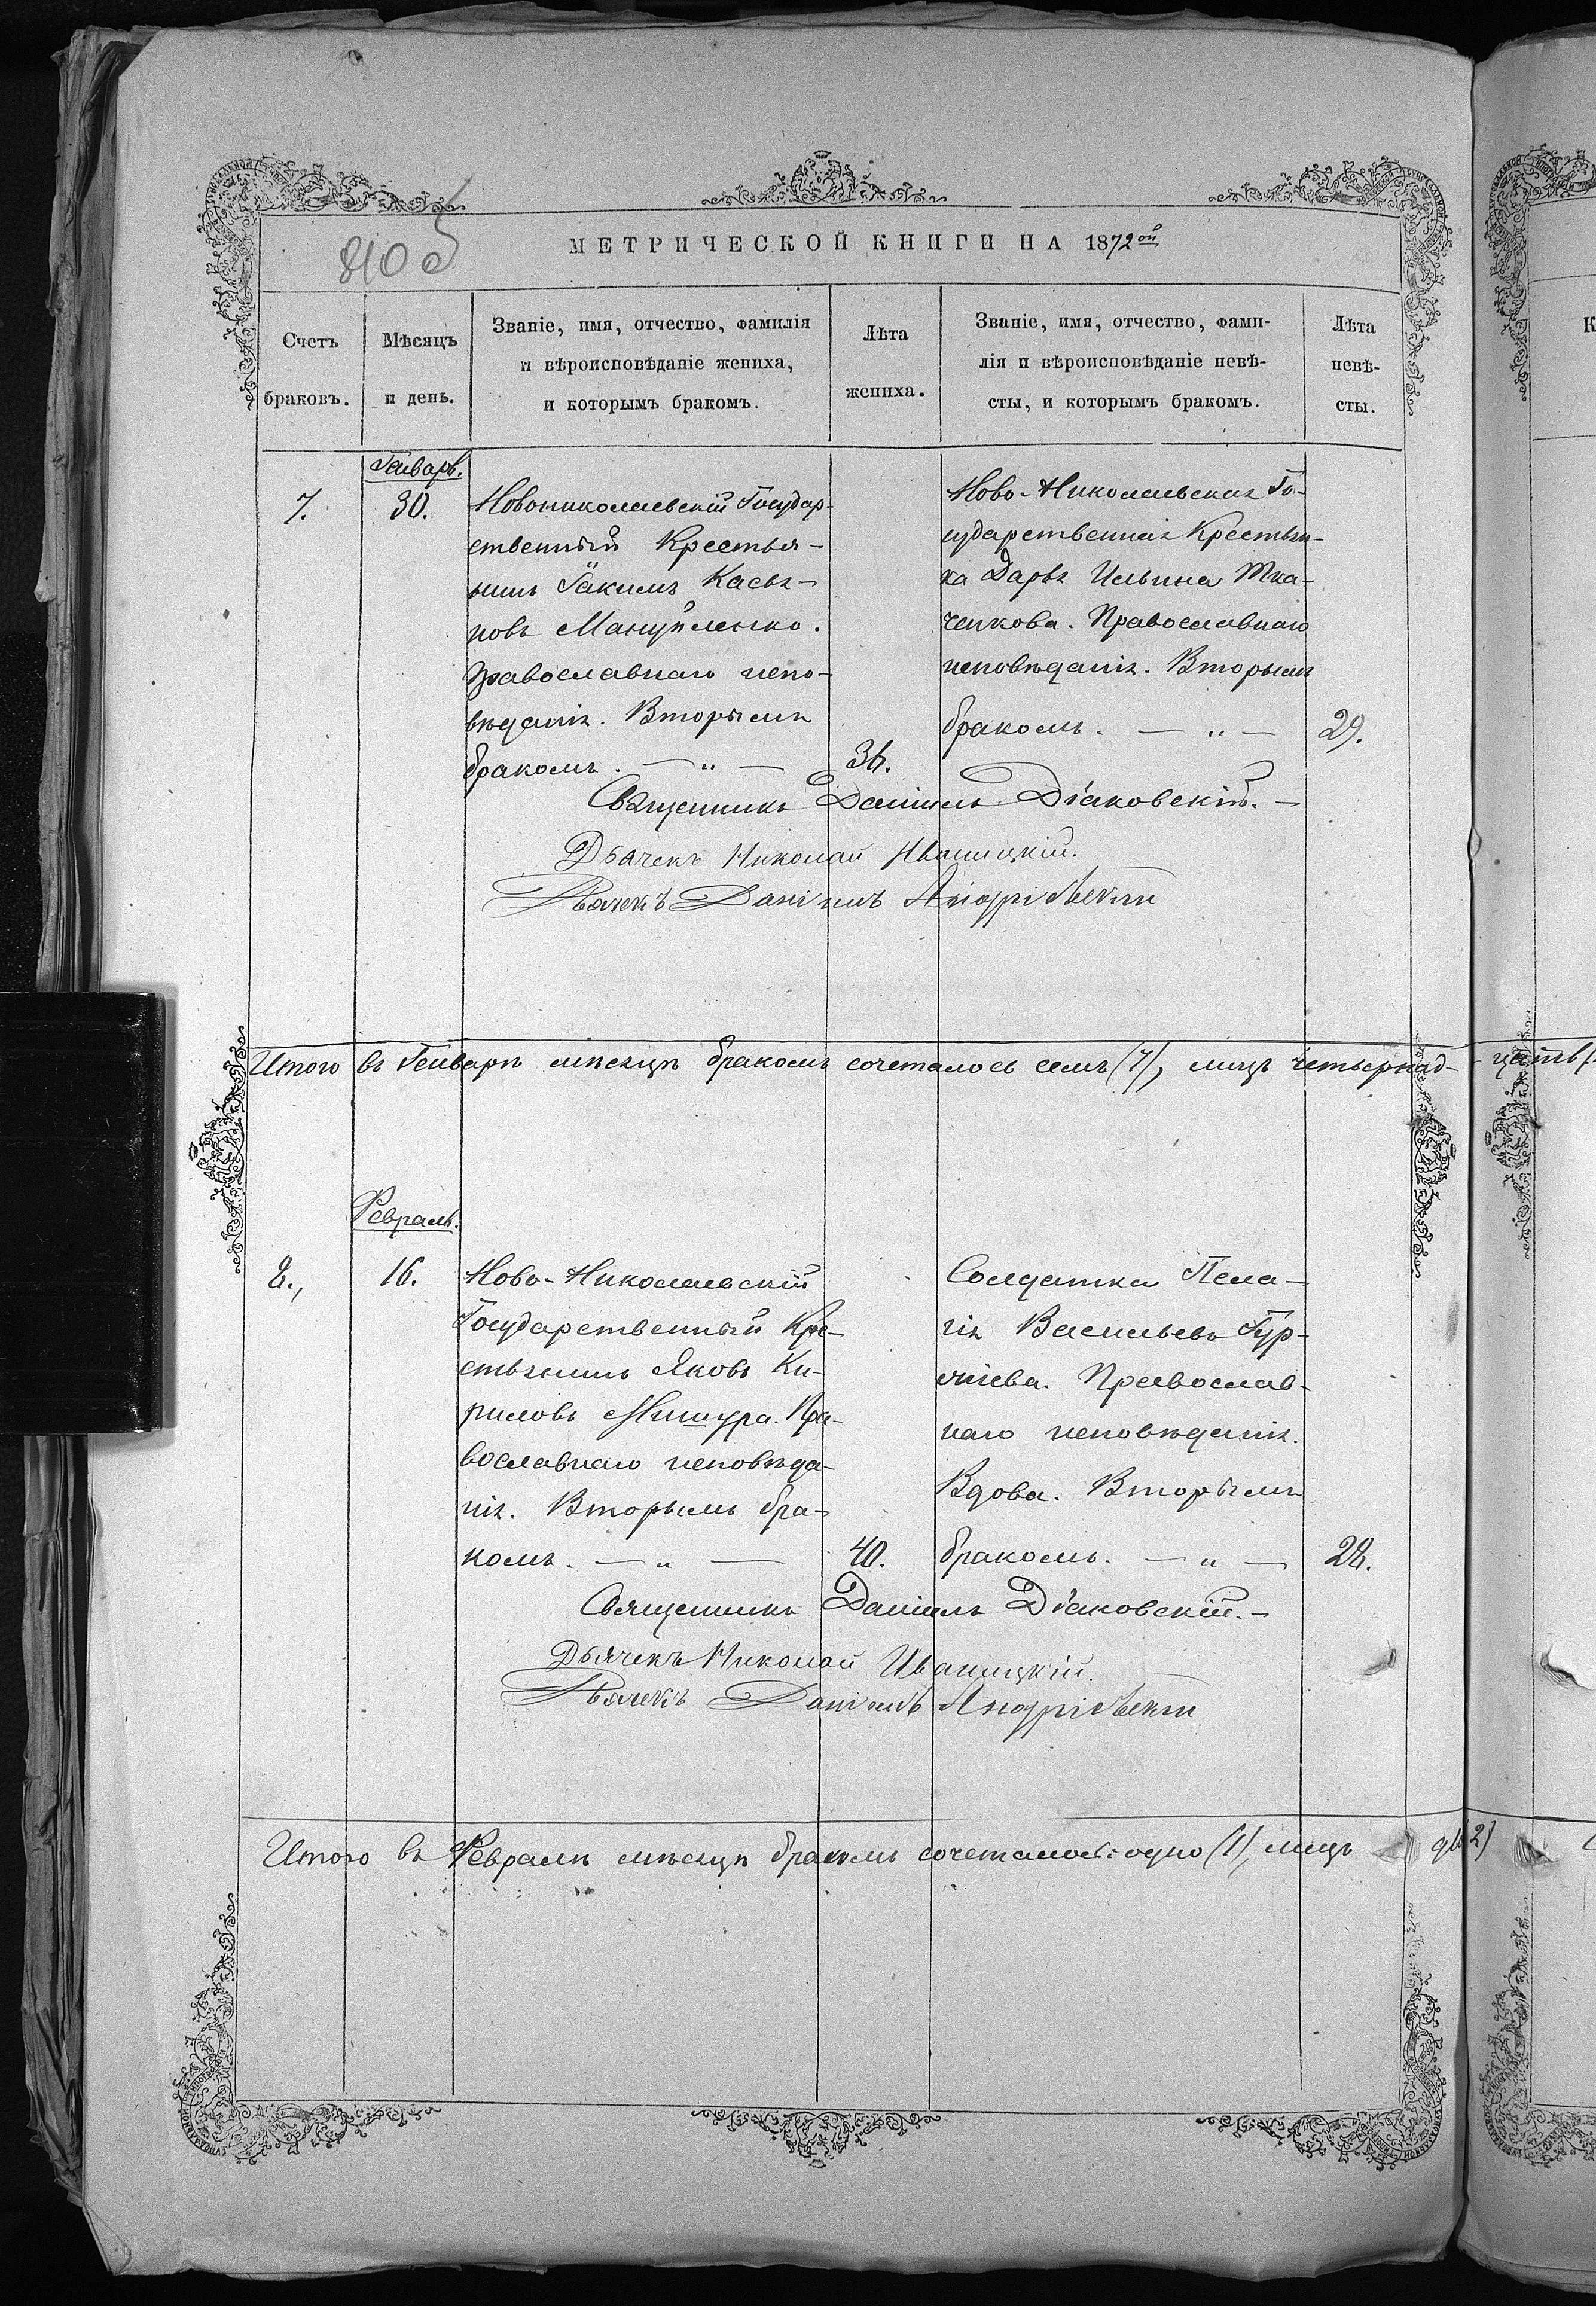 810 об
МЕТРИЧЕСКОЙ КНИГИ НА 1872ой
Счетъ браковъ.
Мѣсяцъ и день.
Званіе, имя, отчество, фамилія
и вѣроисповѣданіе жениха,
и которымъ бракомъ.
Лѣта жениха.
Званіе, имя, отчество, фами-
лія и вѣроисповѣданіе невѣ-
сты, и которымъ бракомъ.
Лѣта невѣ-
сты.
Генварь.
7.
30.
Новониколаевскій Государ-
ственный Крестья-
нинъ Іакимъ Касья-
новъ Мануйленко.
Православнаго испо-
вѣданія. Вторымъ
бракомъ. — „ —
36.
Ново-Николаевская Го-
сударственная Крестьян-
ка Дарья Ильина Тка-
ченкова. Православнаго
исповѣданія. Вторымъ
бракомъ. — „ —
29.
Священникъ Даніилъ Діаковскій. —
Дьячекъ Николай Иваницкій.
Дьячекъ Даніилъ Андріевскій
Итого въ Генварѣ мѣсяцѣ бракомъ сочеталось семь (7), лицъ четырнад-цать
Февраль.
8.,
16.
Ново-Николаевскій
Государственный Кре-
стьянинъ Яковъ Ки-
риловъ Мишура. Пра-
вославнаго исповѣда-
нія. Вторымъ бра-
комъ. — „ —
40.
Солдатка Пела-
гія Васильева Гур-
Православ-
наго исповѣданія.
Вдова. Вторымъ
бракомъ. — „ —
28.
Священникъ Даніилъ Діаковскій. —
Дьячекъ Николай Иваницкій.
Дьячекъ Даніилъ Андріевскій
Итого въ Февралѣ мѣсяцѣ бракомъ сочеталось: одно (1), лицъ